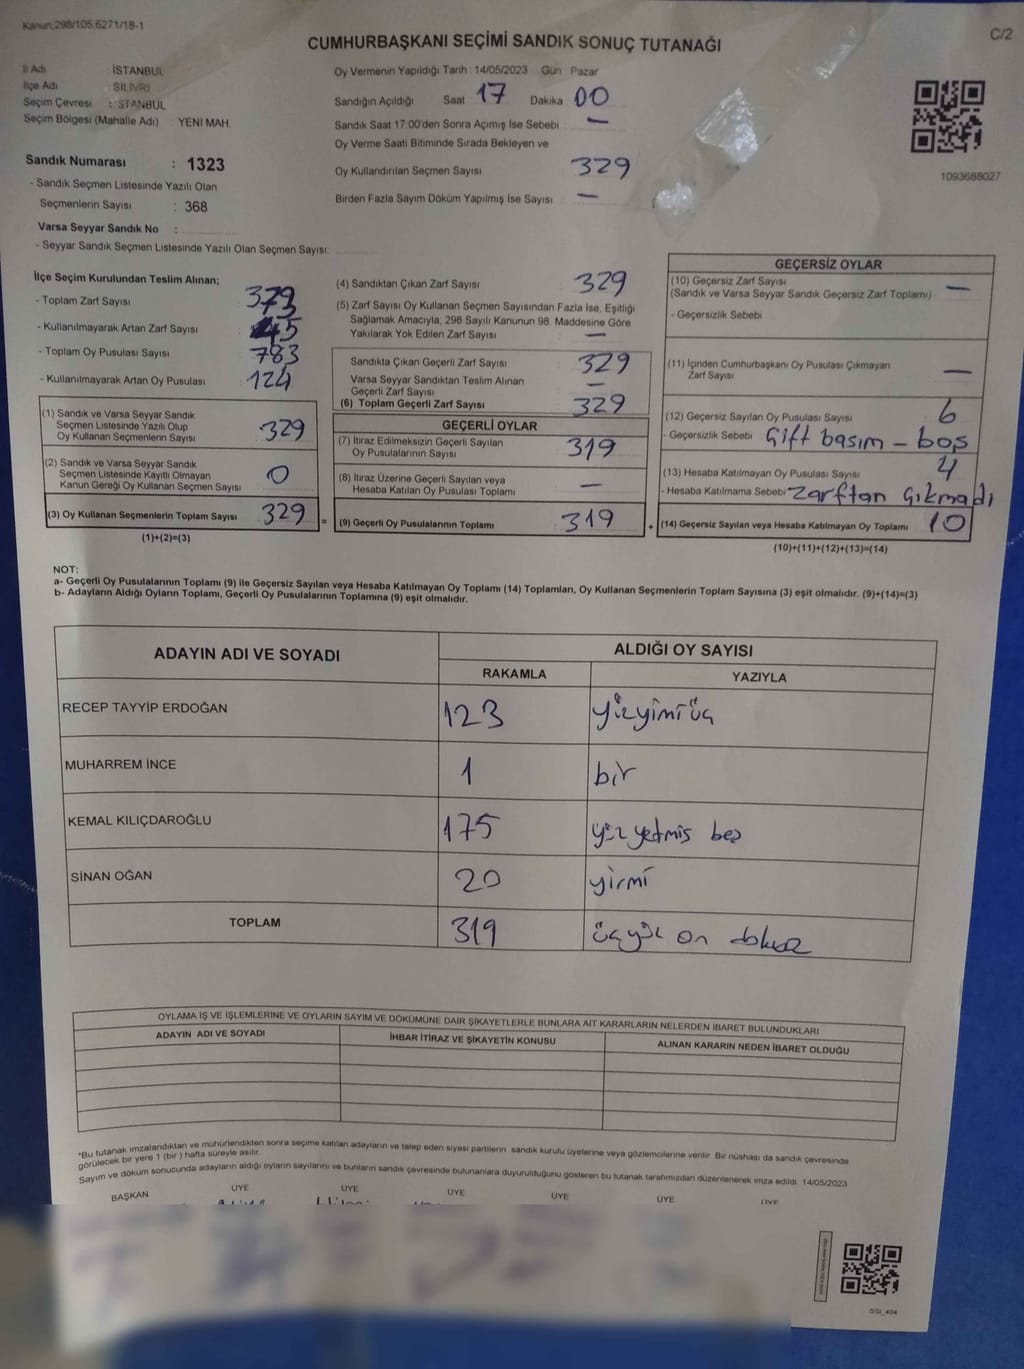 Kanun,298/105,6271/18-1
C/2
CUMHURBAŞKANI SEÇİMİ SANDIK SONUÇ TUTANAĞI
İl Adı : İSTANBUL
İlçe Adı SİLİVRİ
Seçim Çevresi : İSTANBUL
Seçim Bölgesi (Mahalle Adı) : YENİ MAH.
Sandık Numarası : 1323
- Sandık Seçmen Listesinde Yazılı Olan
Seçmenlerin Sayısı : 368
Varsa Seyyar Sandık No :
- Seyyar Sandık Seçmen Listesinde Yazılı Olan Seçmen Sayısı:
Oy Vermenin Yapıldığı Tarih : 14/05/2023 Gün Pazar
Sandığın Açıldığı Saat 17 Dakika 00
Sandık Saat 17:00'den Sonra Açımış İse Sebebi : —
Oy Verme Saati Bitiminde Sırada Bekleyen ve
Oy Kullandırılan Seçmen Sayısı 329
Birden Fazla Sayım Döküm Yapılmış İse Sayısı : —
1093688027
İlçe Seçim Kurulundan Teslim Alınan;
- Toplam Zarf Sayısı
- Kullanılmayarak Artan Zarf Sayısı
- Toplam Oy Pusulası Sayısı 783
- Kullanılmayarak Artan Oy Pusulası 124
(1) Sandık ve Varsa Seyyar Sandık
Seçmen Listesinde Yazılı Olup
Oy Kullanan Seçmenlerin Sayısı 329
(2) Sandık ve Varsa Seyyar Sandık
Seçmen Listesinde Kayıtlı Olmayan
Kanun Gereği Oy Kullanan Seçmen Sayısı 0
(3) Oy Kullanan Seçmenlerin Toplam Sayısı 329 =
(1)+(2)=(3)
(4) Sandıktan Çıkan Zarf Sayısı 329
(5) Zarf Sayısı Oy Kullanan Seçmen Sayısından Fazla İse, Eşitliği
Sağlamak Amacıyla; 298 Sayılı Kanunun 98. Maddesine Göre
Yakılarak Yok Edilen Zarf Sayısı —
Sandıkta Çıkan Geçerli Zarf Sayısı 329
Varsa Seyyar Sandıktan Teslim Alınan
Geçerli Zarf Sayısı —
(6) Toplam Geçerli Zarf Sayısı 329
GEÇERLİ OYLAR
(7) İtiraz Edilmeksizin Geçerli Sayılan
Oy Pusulalarının Sayısı 319
(8) İtiraz Üzerine Geçerli Sayılan veya
Hesaba Katılan Oy Pusulası Toplamı —
(9) Geçerli Oy Pusulalarının Toplamı 319 +
GEÇERSİZ OYLAR
(10) Geçersiz Zarf Sayısı —
(Sandık ve Varsa Seyyar Sandık Geçersiz Zarf Toplamı)
- Geçersizlik Sebebi
(11) İçinden Cumhurbaşkanı Oy Pusulası Çıkmayan
Zarf Sayısı —
(12) Geçersiz Sayılan Oy Pusulası Sayısı 6
- Geçersizlik Sebebi Çift basım - boş
(13) Hesaba Katılmayan Oy Pusulası Sayısı 4
- Hesaba Katılmama Sebebi Zarftan Çıkmadı
(14) Geçersiz Sayılan veya Hesaba Katılmayan Oy Toplamı 10
(10)+(11)+(12)+(13)=(14)
NOT:
a- Geçerli Oy Pusulalarının Toplamı (9) ile Geçersiz Sayılan veya Hesaba Katılmayan Oy Toplamı (14) Toplamları, Oy Kullanan Seçmenlerin Toplam Sayısına (3) eşit olmalıdır. (9)+(14)=(3)
b- Adayların Aldığı Oyların Toplamı, Geçerli Oy Pusulalarının Toplamına (9) eşit olmalıdır.
ADAYIN ADI VE SOYADI ALDIĞI OY SAYISI
RAKAMLA YAZIYLA
RECEP TAYYİP ERDOĞAN 123 yüzyirmi üç
MUHARREM İNCE 1 bir
KEMAL KILIÇDAROĞLU 175 yüz yetmiş beş
SİNAN OĞAN 20 yirmi
TOPLAM 319 üçyüz on dokuz
OYLAMA İŞ VE İŞLEMLERİNE VE OYLARIN SAYIM VE DÖKÜMÜNE DAİR ŞİKAYETLERLE BUNLARA AİT KARARLARIN NELERDEN İBARET BULUNDUKLARI
ADAYIN ADI VE SOYADI İHBAR İTİRAZ VE ŞİKAYETİN KONUSU ALINAN KARARIN NEDEN İBARET OLDUĞU
*Bu tutanak imzalandıktan ve mühürlendikten sonra seçime katılan adayların ve talep eden siyasi partilerin sandık kurulu üyelerine veya gözlemcilerine verilir. Bir nüshası da sandık çevresinde
görülecek bir yere 1 (bir) hafta süreyle asılır.
Sayım ve döküm sonucunda adayların aldığı oyların sayılarını ve bunların sandık çevresinde bulunanlara duyurulduğunu gösteren bu tutanak tarafımızdan düzenlenerek imza edildi. 14/05/2023
BAŞKAN ÜYE ÜYE ÜYE ÜYE ÜYE ÜYE